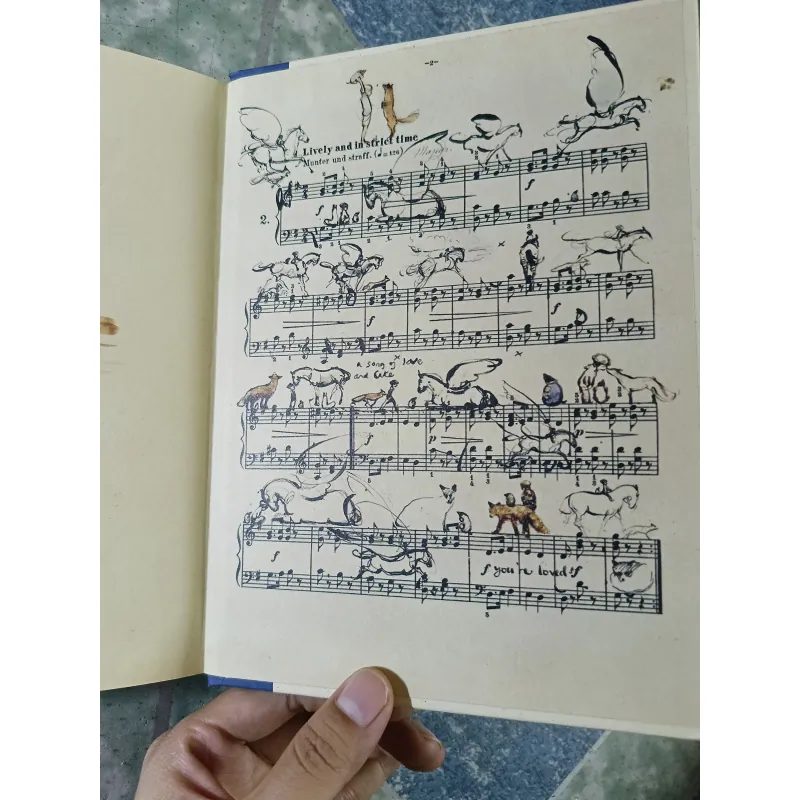 -2-
Lively and in strict time
Munter und straff. (♩=126)
2.
f
f
f
f
a song of love
and cake
f
p
p
f
f you're loved! f